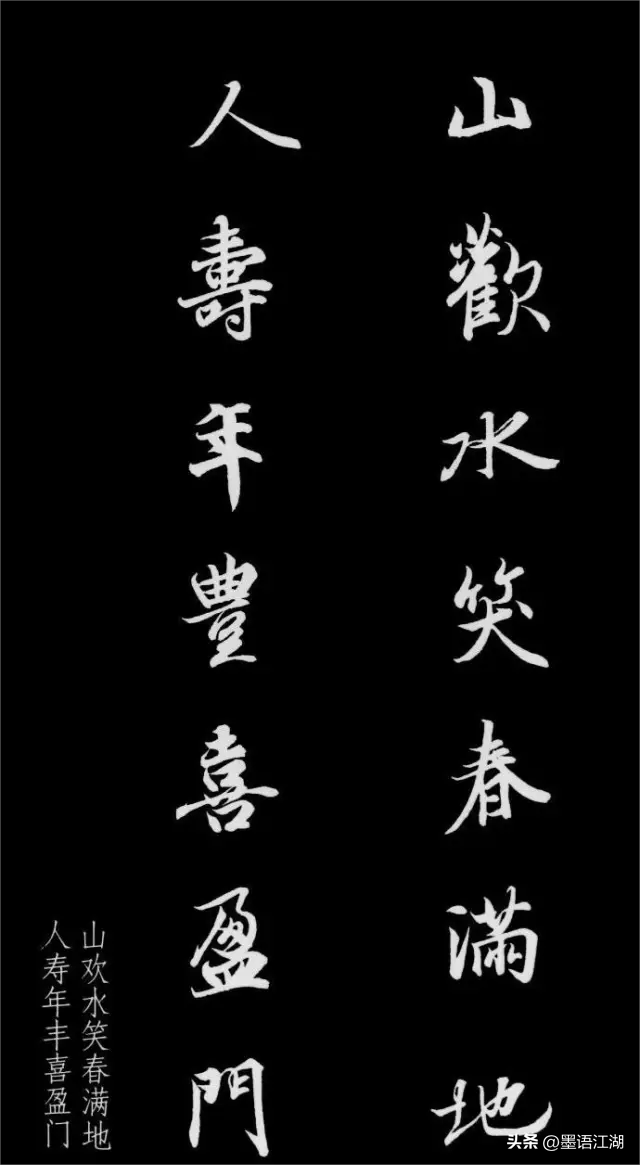 山歡水笑春滿地
人壽年豐喜盈門
山欢水笑春满地
人寿年丰喜盈门
头条 @墨语江湖